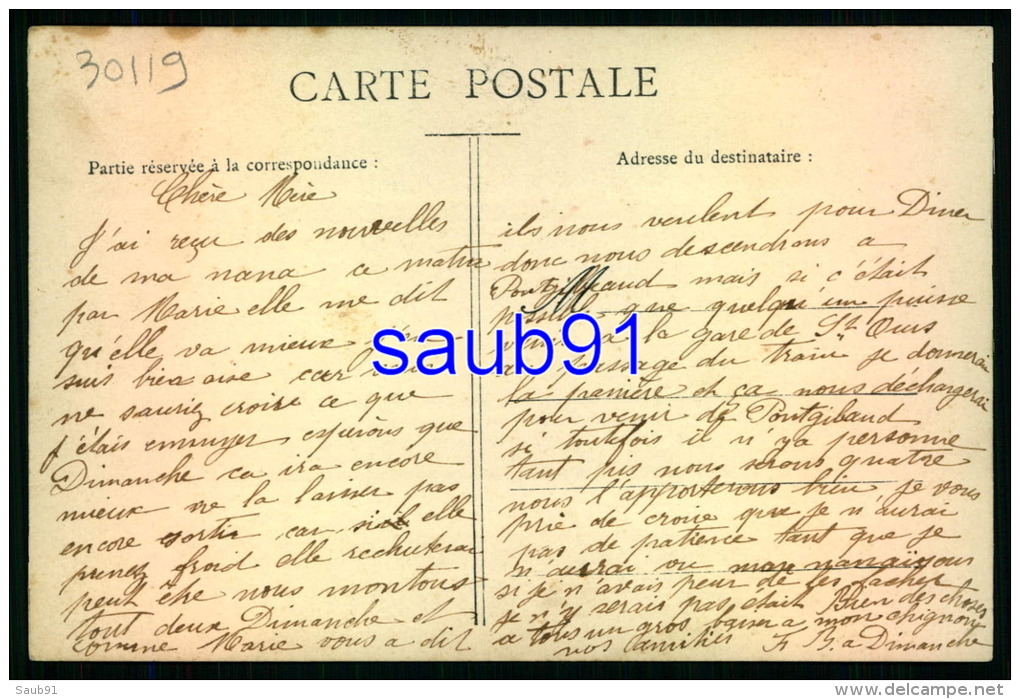 30119
CARTE POSTALE
Partie réservée à la correspondance :
Adresse du destinataire :
Chère Mère
J'ai reçu des nouvelles
de ma nana ce matin
par Marie elle me dit
qu'elle va mieux
suis bien aise car
ne sauriez croire ce que
j'étais ennuyer espérons que
Dimanche ca ira encore
mieux ne la laisser pas
encore sortir car si elle
prenez froid elle rechuterai
peut être nous montons
tout deux Dimanche et
comme Marie vous a dit
ils nous veulent pour Diner
donc nous descendrons a
Pontgibaud mais si c'était
possible que quelqu'un puisse
venir a la gare de St Ours
au passage du train je donnerai
la panière et ça nous déchargerai
pour venir de Pontgibaud
si toutefois il n'y a personne
tant pis nous serons quatre
nous l'apporterons bien je vous
prie de croire que je n'aurai
pas de patience tant que je
n'aurai vu man nanaï
si je n'avais peur de les facher
je n'y serais pas était Bien des choses
a tous un gros baiser a mon chignon
vos familles F. B. a Dimanche
saub91
Saub91
www.delcampe.net